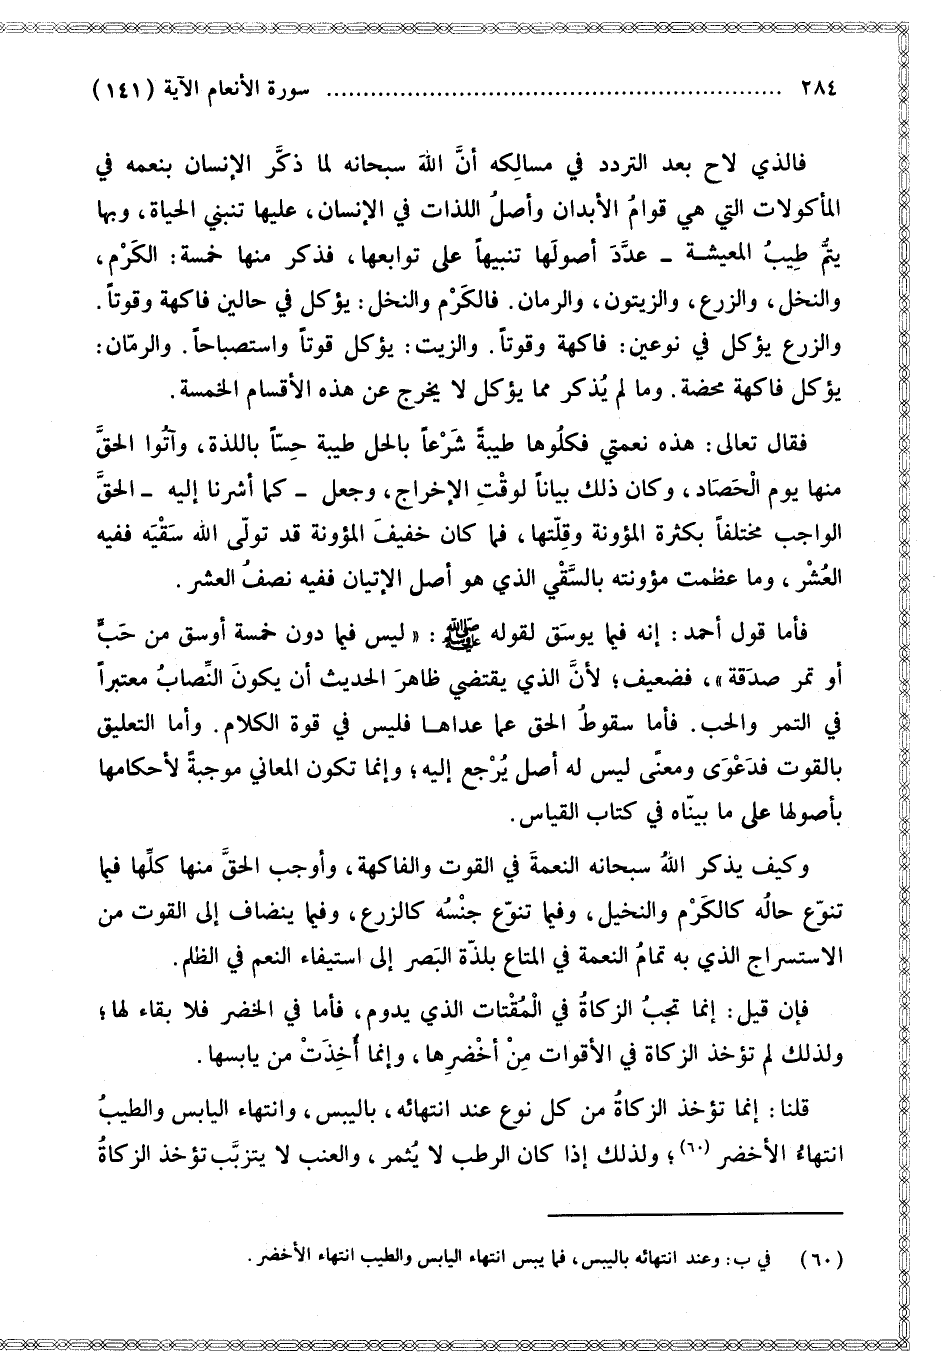 ٢٨٤ ........................................................... سورة الأنعام الآية (١٤١)
فالذي لاح بعد التردد في مسالِكه أنَّ اللهَ سبحانه لما ذكَّر الإنسان بنعمه في
المأكولات التي هي قوامُ الأبدان وأصلُ اللذات في الإنسان، عليها تنبني الحياة، وبها
يتمُّ طِيبُ المعيشة ـ عدَّدَ أصولَها تنبيهاً على توابعها، فذكر منها خمسة: الكَرْم،
والنخل، والزرع، والزيتون، والرمان. فالكَرْم والنخل: يؤكل في حالين فاكهة وقوتاً.
والزرع يؤكل في نوعين: فاكهة وقوتاً. والزيت: يؤكل قوتاً واستصباحاً. والرمّان:
يؤكل فاكهة محضة. وما لم يُذكر مما يؤكل لا يخرج عن هذه الأقسام الخمسة.
فقال تعالى: هذه نعمتي فكلُوها طيبةً شَرْعاً بالحل طيبة حِسّاً باللذة، وآتُوا الحقَّ
منها يوم الْحَصَاد، وكان ذلك بياناً لوقْتِ الإخراج، وجعل ـ كما أشرنا إليه ـ الحقَّ
الواجب مختلفاً بكثرة المؤونة وقِلّتها، فما كان خفيفَ المؤونة قد تولّى الله سَقْيَه ففيه
العُشْر، وما عظمت مؤونته بالسَّقْي الذي هو أصل الإتيان ففيه نصفُ العشر.
فأما قول أحمد: إنه فيما يوسَق لقوله ﷺ: «ليس فيما دون خمسة أوسق من حَبٍّ
أو تمر صدقة»، فضعيف؛ لأنَّ الذي يقتضي ظاهرَ الحديث أن يكونَ النِّصابُ معتبراً
في التمر والحب. فأما سقوطُ الحق عما عداهـا فليس في قوة الكلام. وأما التعليق
بالقوت فدَعْوَى ومعنًى ليس له أصل يُرْجع إليه؛ وإنما تكون المعاني موجبةً لأحكامها
بأصولها على ما بينّاه في كتاب القياس.
وكيف يذكر اللهُ سبحانه النعمةَ في القوت والفاكهة، وأوجب الحقَّ منها كلِّها فيما
تنوّع حالُه كالكَرْم والنخيل، وفيما تنوّع جنْسُه كالزرع، وفيما ينضاف إلى القوت من
الاستسراج الذي به تمامُ النعمة في المتاع بلذّة البَصر إلى استيفاء النعم في الظلم.
فإن قيل: إنما تجبُ الزكاةُ في الْمُقْتات الذي يدوم، فأما في الخضر فلا بقاء لها؛
ولذلك لم تؤخذ الزكاة في الأقوات مِنْ أخْضرِها، وإنما أُخِذَتْ من يابسها.
قلنا: إنما تؤخذ الزكاةُ من كل نوع عند انتهائه، باليبس، وانتهاء اليابس والطيبُ
انتهاءُ الأخضر (٦٠)؛ ولذلك إذا كان الرطب لا يُثمر، والعنب لا يتزبَّب تؤخذ الزكاةُ
(٦٠) في ب: وعند انتهائه باليبس، فما يبس انتهاء اليابس والطيب انتهاء الأخضر.